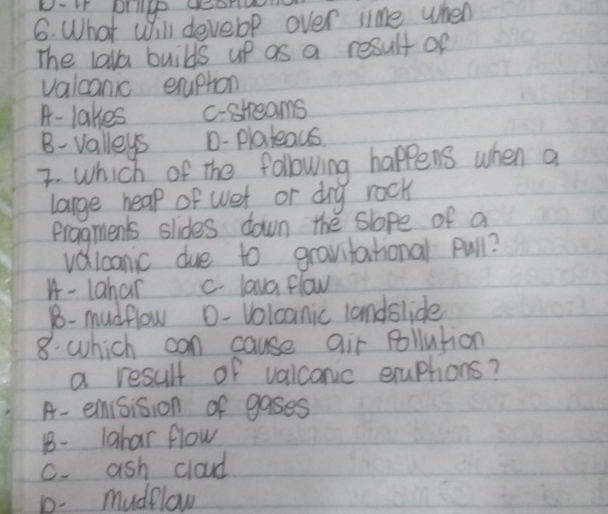 D- It brings
6. What will develop over time when
The lava builds up as a result of
valcanic eruption
A- lakes C- streams
B- valleys D- Plateaus.
7. Which of the following happens when a
large heap of wet or dry rock
fragments slides down the slope of a
valcanic due to gravitational Pull?
A- lahar C- lava flow
B- mudflow D- Volcanic landslide
8. which can cause air Pollution
a result of valcanic eruptions?
A- emisision of gases
B- lahar flow
C- ash cloud
D- mudflow